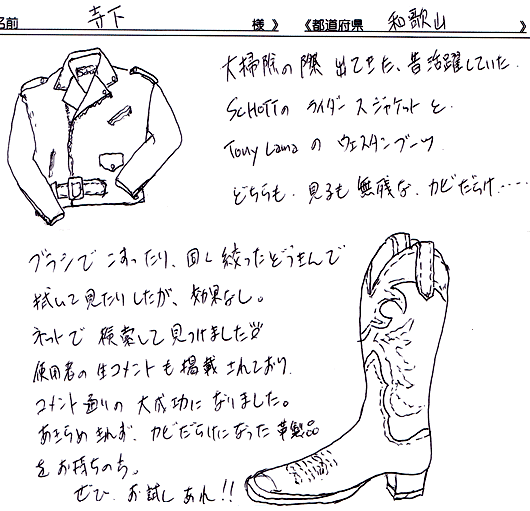 名前 寺下 様 》 《都道府県 和歌山 》
大掃除の際 出てきた、昔活躍していた
SCHOTTの ライダースジャケットと
Tony Lama の ウェスタンブーツ
どちらも、見るも無残な、カビだらけ……
ブラシで こすったり、固く絞ったぞうきんで
拭いて見たりしたが、効果なし。
ネットで 検索して見つけました
使用者の生コメントも掲載されており
コメント通りの 大成功になりました。
あきらめきれず、カビだらけになった革製品
をお持ちの方。
ぜひ お試しあれ!!